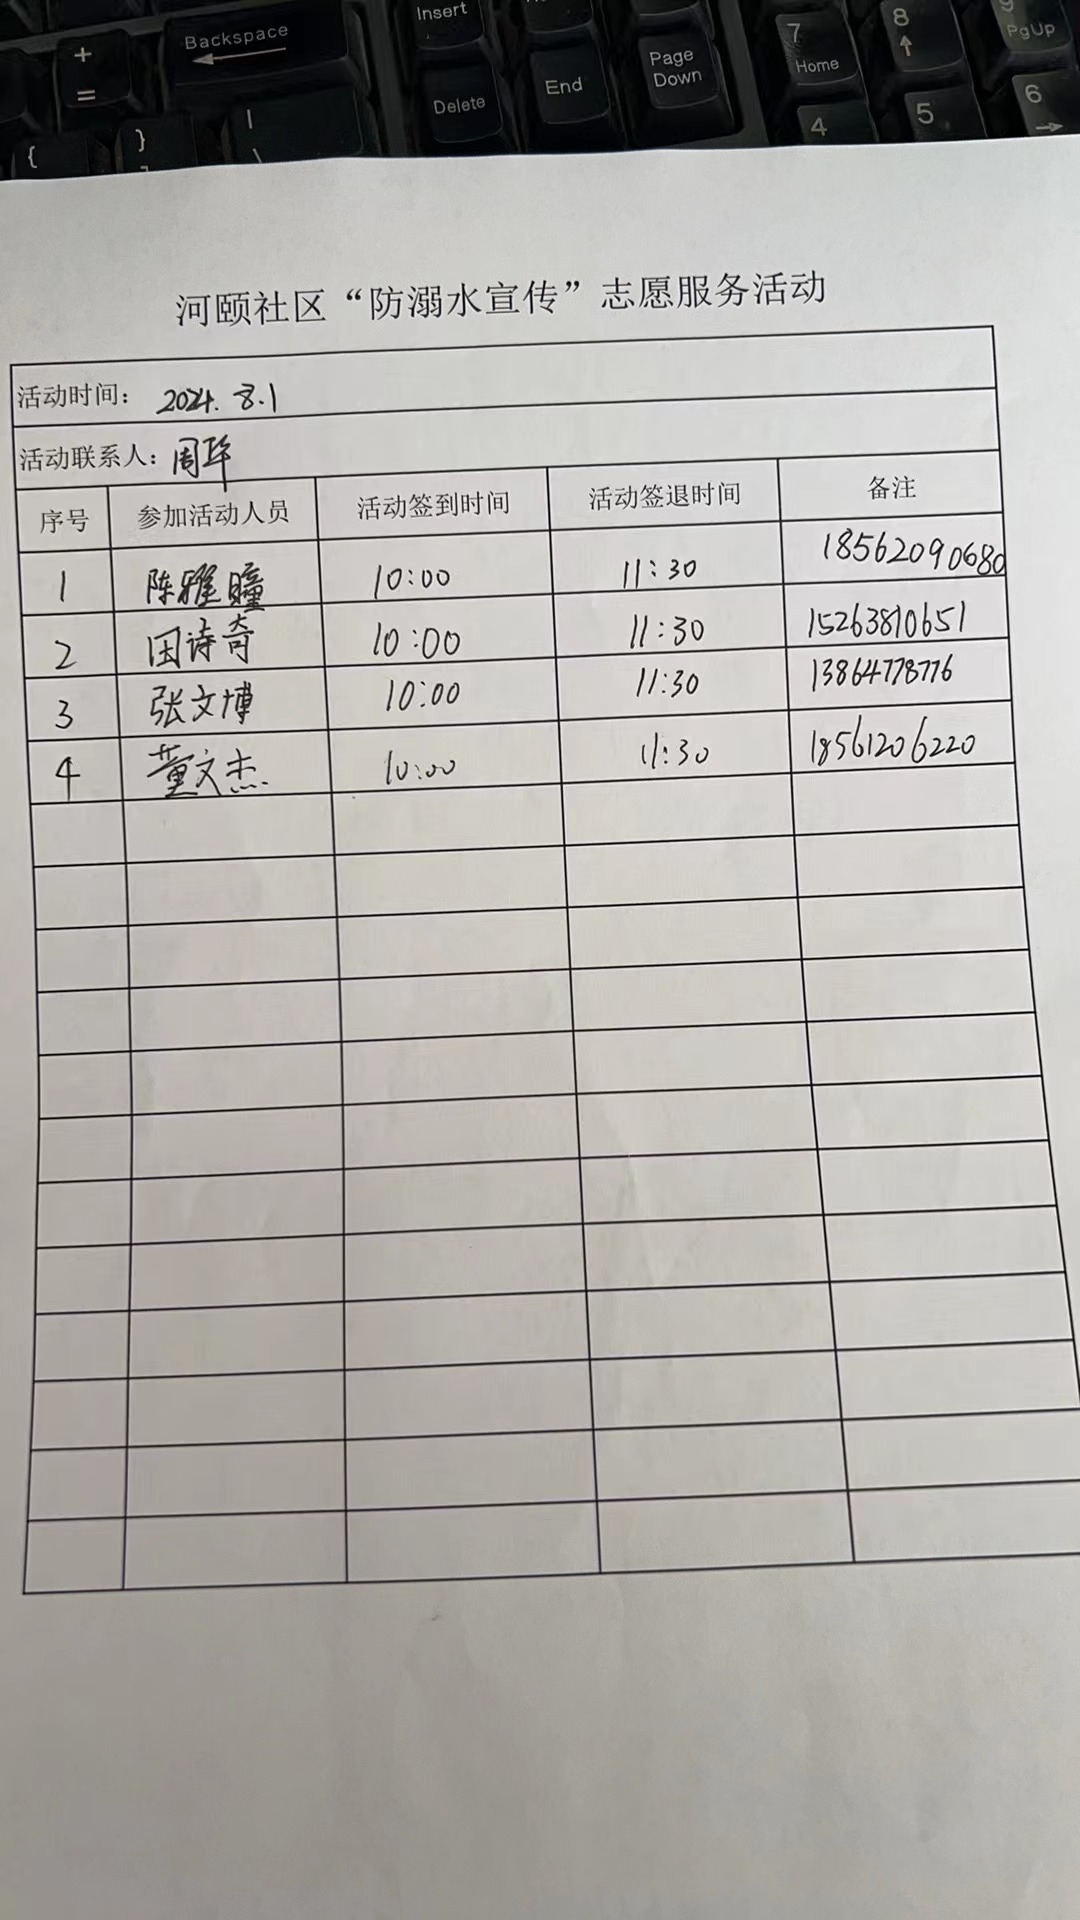 Insert
Backspace
+
=
Delete
End
Page
Down
7
Home
8
9
PgUp
4
5
6
{
}
|
\
河颐社区“防溺水宣传”志愿服务活动
活动时间： 2024. 8.1
活动联系人：周华
序号 参加活动人员 活动签到时间 活动签退时间 备注
1 陈雅瞳 10:00 11:30 18562090680
2 田诗奇 10:00 11:30 15263810651
3 张文博 10:00 11:30 13864778776
4 董文杰 10:00 11:30 18561206220